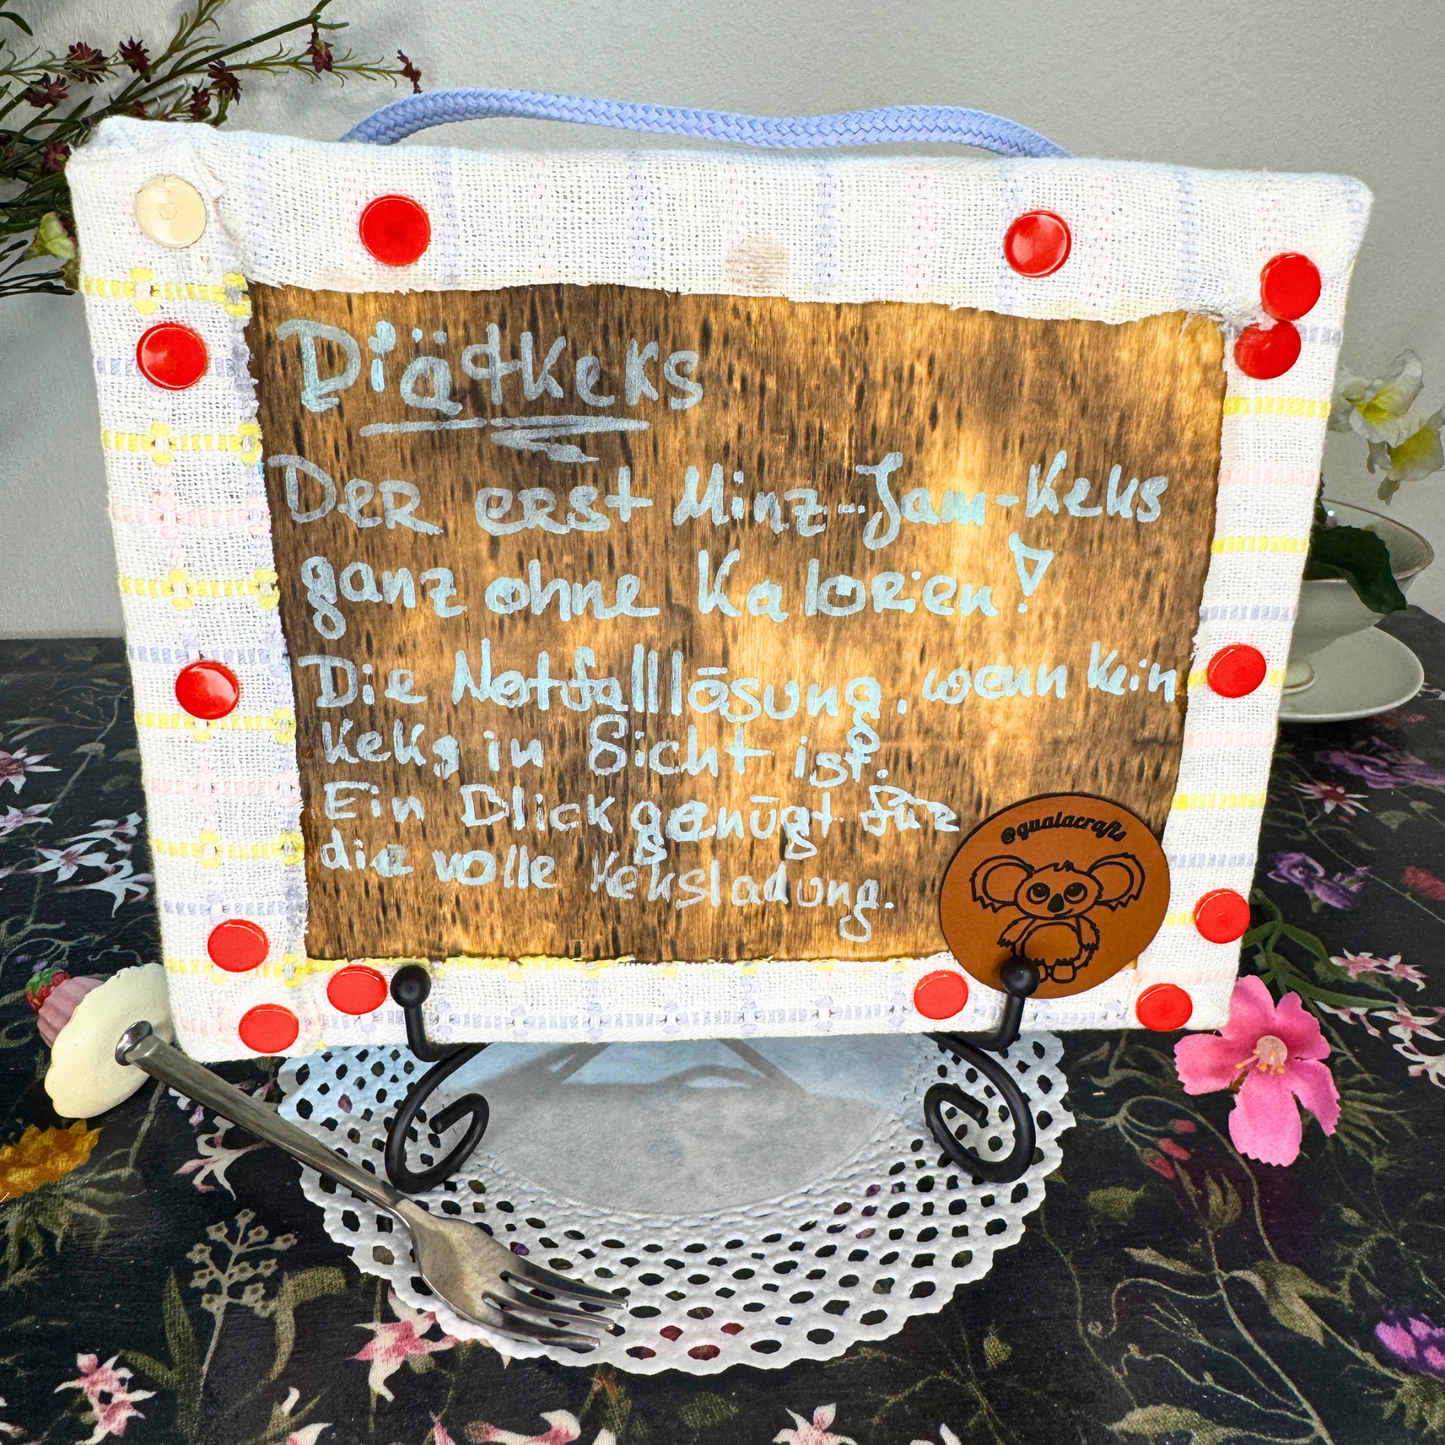 Diätkeks
Der erst Minz-Jam-Keks
ganz ohne Kalorien!
Die Notfalllösung, wenn kein
Keks in Sicht ist.
Ein Blick genügt für
die volle Keksladung.
@gualacrafts